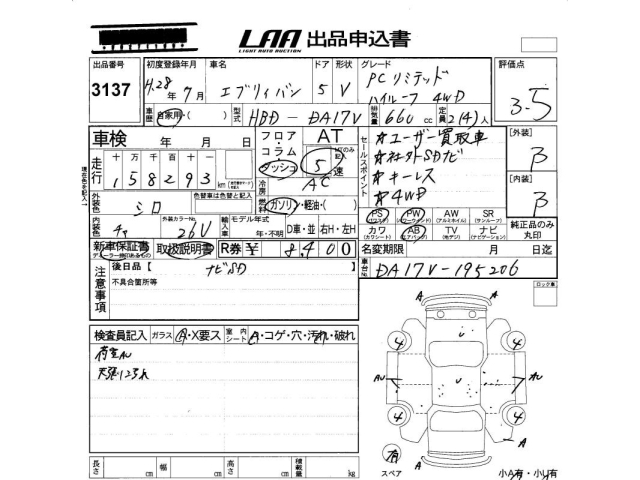 LAA 出品申込書
LIGHT AUTO AUCTION
出品番号 初度登録年月 車名 ドア 型 グレード 評価点
3137 H.28 年 7 月 エブリィバン 5 V PCリミテッド ハイルーフ 4WD 3.5
車歴 自家用・( ) 型式 HBD-DA17V 排気量 660 cc 定員 2(4)人
車検 年 月 日 フロア・コラム・ダッシュ AT 5 速 MTのみ記入
走行 十万千百十 158293 km
冷房 AC
セールスポイント
☆ユーザー買取車
☆社外SDナビ
☆キーレス
☆4WD
[外装] B
[内装] B
外装色 シロ 色替車は色替と記入 燃料 ガソリン・軽油・( )
内装色 チャ 外装カラーNo. 26U 輸入車 モデル年式 年・不明 D車・並 右H・左H
PS (パワステ) PW (パワーウィンド) AW (アルミホイル) SR (サンルーフ)
カワ (カワシート) AB (エアバッグ) TV (テレビ) ナビ (ナビゲーション)
純正品のみ丸印
新車保証書 取扱説明書 R券 ¥ 8,400
名変期限 月 日迄
注意事項 後日品【 ナビSD 】
不具合箇所等
車台No. DA17V-195206
ロック車
検査員記入 ガラス A・X要ス 室内シート A・コゲ・穴・汚れ・破れ
荷室AU
天張りヨゴれ
A A
4 4
AU U U AU
4 4
A
有
スペア A
小A有・小U有
長さ cm 幅 cm 高さ cm 積載量 kg